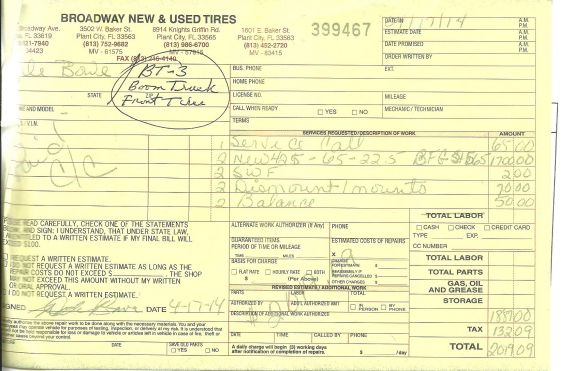 BROADWAY NEW & USED TIRES
399467
Broadway Ave. 3502 W. Baker St. 8914 Knights Griffin Rd. 1601 E. Baker St.
FL 33619 Plant City, FL 33563 Plant City, FL 33565 Plant City, FL 33563
621-7940 (813) 752-9682 (813) 986-6700 (813) 452-2720
34423 MV - 61575 MV - 57916 MV - 83415
FAX (813) 216-4140
DATE/IN 4/17/14 A.M. P.M.
ESTIMATE DATE
DATE PROMISED A.M. P.M.
ORDER WRITTEN BY
BUS. PHONE EXT.
HOME PHONE
LICENSE NO. MILEAGE
CALL WHEN READY YES NO MECHANIC / TECHNICIAN
TERMS
BT-3
Boom Truck
Front Tire
STATE ZIP
AND MODEL
S. - V.I.N.
Paid
C/C
SERVICES REQUESTED/DESCRIPTION OF WORK AMOUNT
1 Service Call 65.00
2 New 425-65-22.5 BFG 1700.00
2 SWF 2.00
2 Dismount/mounts 70.00
2 Balance 50.00
TOTAL LABOR
PLEASE READ CAREFULLY, CHECK ONE OF THE STATEMENTS
BELOW, AND SIGN: I UNDERSTAND, THAT UNDER STATE LAW,
I AM ENTITLED TO A WRITTEN ESTIMATE IF MY FINAL BILL WILL
EXCEED $100.
I REQUEST A WRITTEN ESTIMATE.
I DO NOT REQUEST A WRITTEN ESTIMATE AS LONG AS THE
REPAIR COSTS DO NOT EXCEED $ , THE SHOP
MAY NOT EXCEED THIS AMOUNT WITHOUT MY WRITTEN
OR ORAL APPROVAL.
I DO NOT REQUEST A WRITTEN ESTIMATE.
SIGNED DATE 4-17-14
SAVE OLD PARTS YES NO
ALTERNATE WORK AUTHORIZER (If Any) PHONE
GUARANTEED ITEMS ESTIMATED COSTS OF REPAIRS
PERIOD OF TIME OR MILEAGE
TIME MILES
BASIS FOR CHARGE
FLAT RATE HOURLY RATE BOTH
$ (Per Above)
CHARGE FOR ESTIMATE $
REASSEMBLY IF REPAIRS CANCELLED $
OTHER CHARGES $
REVISED ESTIMATE / ADDITIONAL WORK
PARTS LABOR TOTAL
AUTHORIZED BY ADD'L AUTHORIZED AMT IN PERSON BY PHONE
DESCRIPTION OF ADDITIONAL WORK AUTHORIZED
DATE TIME CALLED BY PHONE
A daily charge will begin (3) working days
after notification of completion of repairs. $ / day
CASH CHECK CREDIT CARD
TYPE EXP.
CC NUMBER
TOTAL LABOR
TOTAL PARTS
GAS, OIL
AND GREASE
STORAGE
1887.00
TAX 132.09
TOTAL 2019.09